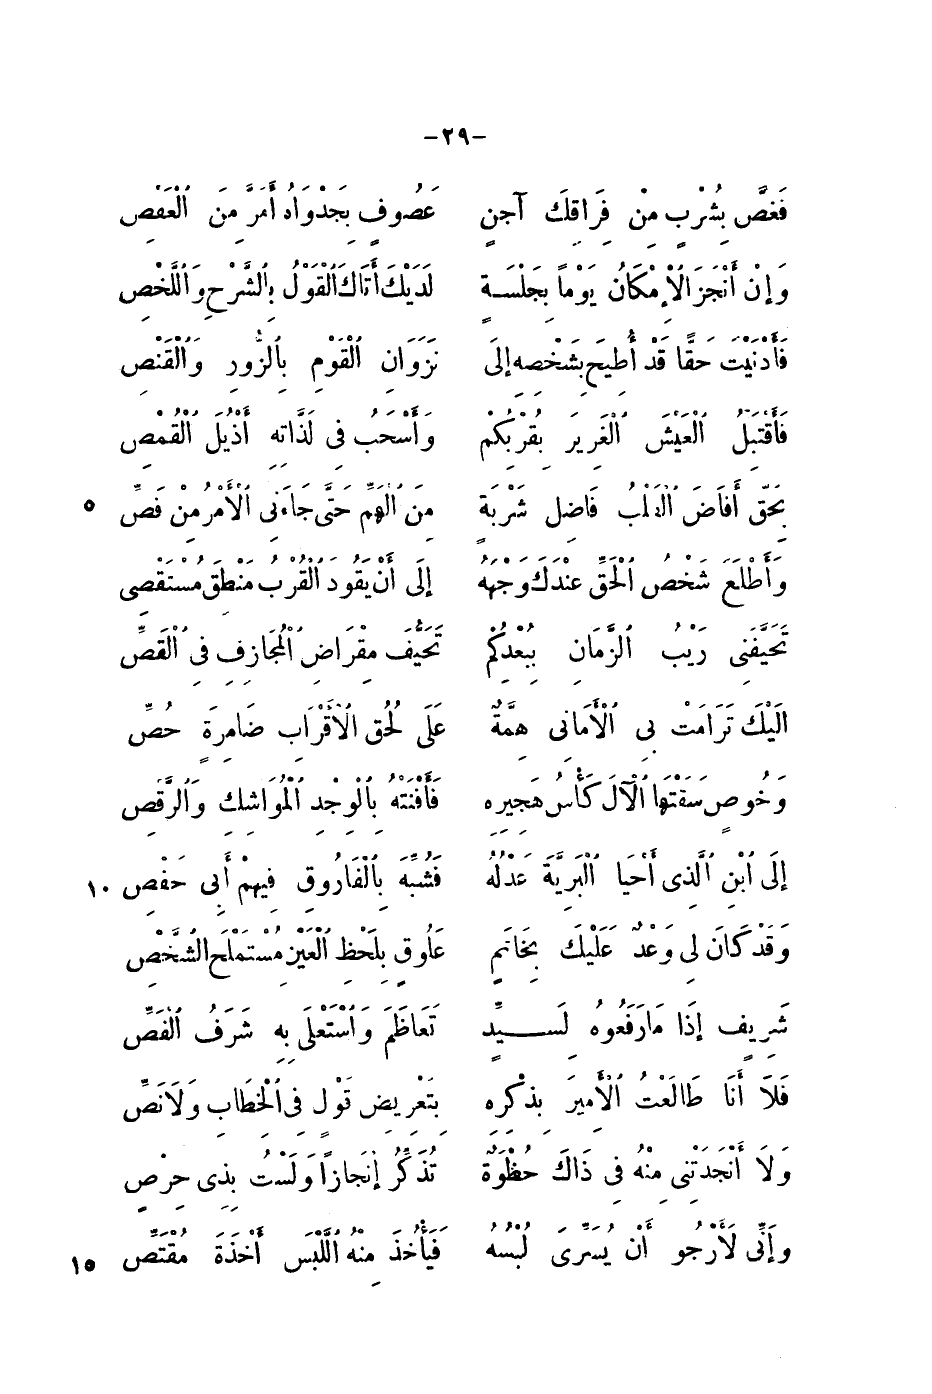 -٢٩-
فَغَصَّ بِشُرْبٍ مِنْ فِرَاقِكَ آجِنٍ عَصُوفٍ بِجَدْوَاهُ أَمَرَّ مِنَ ٱلْعَفْصِ
وَإِنْ أَنْجَزَ ٱلْإِمْكَانُ يَوْماً بِجَلْسَةٍ لَدَيْكَ أَتَاكَ ٱلْقَوْلُ بِٱلشَّرْحِ وَٱللَّخْصِ
فَأَدْنَيْتَ حَقًّا قَدْ أُطِيحَ بِشَخْصِهِ إِلَى نَزَوَانِ ٱلْقَوْمِ بِٱلزُّورِ وَٱلْقَنْصِ
فَأَقْتَبِلُ ٱلْعَيْشَ ٱلْغَرِيرَ بِقُرْبِكُمْ وَأَسْحَبُ فِى لَذَّاتِهِ أَذْيُلَ ٱلْقُمْصِ
بِحَقٍّ أَفَاضَ ٱلْقَلْبُ فَاضِلَ شَرْبَةٍ مِنَ ٱلْهَمِّ حَتَّى جَاءَنِى ٱلْأَمْرُ مِنْ فَصِّ ٥
وَأَطْلَعَ شَخْصُ ٱلْحَقِّ عِنْدَكَ وَجْهَهُ إِلَى أَنْ يَقُودَ ٱلْقُرْبُ مَنْطِقَ مُسْتَقْصِى
تَحَيَّفَنِى رَيْبُ ٱلزَّمَانِ بِبُعْدِكُمْ تَحَيُّفَ مِقْرَاضِ ٱلْمُجَازِفِ فِى ٱلْقَصِّ
إِلَيْكَ تَرَامَتْ بِى ٱلْأَمَانِى هِمَّةٌ عَلَى لُحُقِ ٱلْأَقْرَابِ ضَامِرَةٍ حُصِّ
وَخُوصٍ سَقَتْهَا ٱلْآلَ كَأْسُ هَجِيرِهِ فَأَفْنَتْهُ بِٱلْوَخْدِ ٱلْمُوَاشِكِ وَٱلرَّقْصِ
إِلَى ٱبْنِ ٱلَّذِى أَحْيَا ٱلْبَرِيَّةَ عَدْلُهُ فَشُبِّهَ بِٱلْفَارُوقِ فِيهِمْ أَبِى حَفْصِ ١٠
وَقَدْ كَانَ لِى وَعْدٌ عَلَيْكَ بِخَاتَمٍ عَلُوقٍ بِلَحْظِ ٱلْعَيْنِ مُسْتَمْلَحِ ٱلشَّخْصِ
شَرِيفٍ إِذَا مَا رَفَعُوهُ لِسَيِّدٍ تَعَاظَمَ وَٱسْتَعْلَى بِهِ شَرَفُ ٱلْفَصِّ
فَلَا أَنَا طَالَعْتُ ٱلْأَمِيرَ بِذِكْرِهِ بِتَعْرِيضِ قَوْلٍ فِى ٱلْخِطَابِ وَلَا نَصِّ
وَلَا أَنْجَدَتْنِى مِنْهُ فِى ذَاكَ حُظْوَةٌ تُذَكِّرُ إِنْجَازاً وَلَسْتُ بِذِى حِرْصِ
وَإِنِّى لَأَرْجُو أَنْ يُسَرِّىَ لُبْسُهُ فَيَأْخُذَ مِنْهُ ٱللَّبْسَ أَخْذَةَ مُقْتَصِّ ١٥